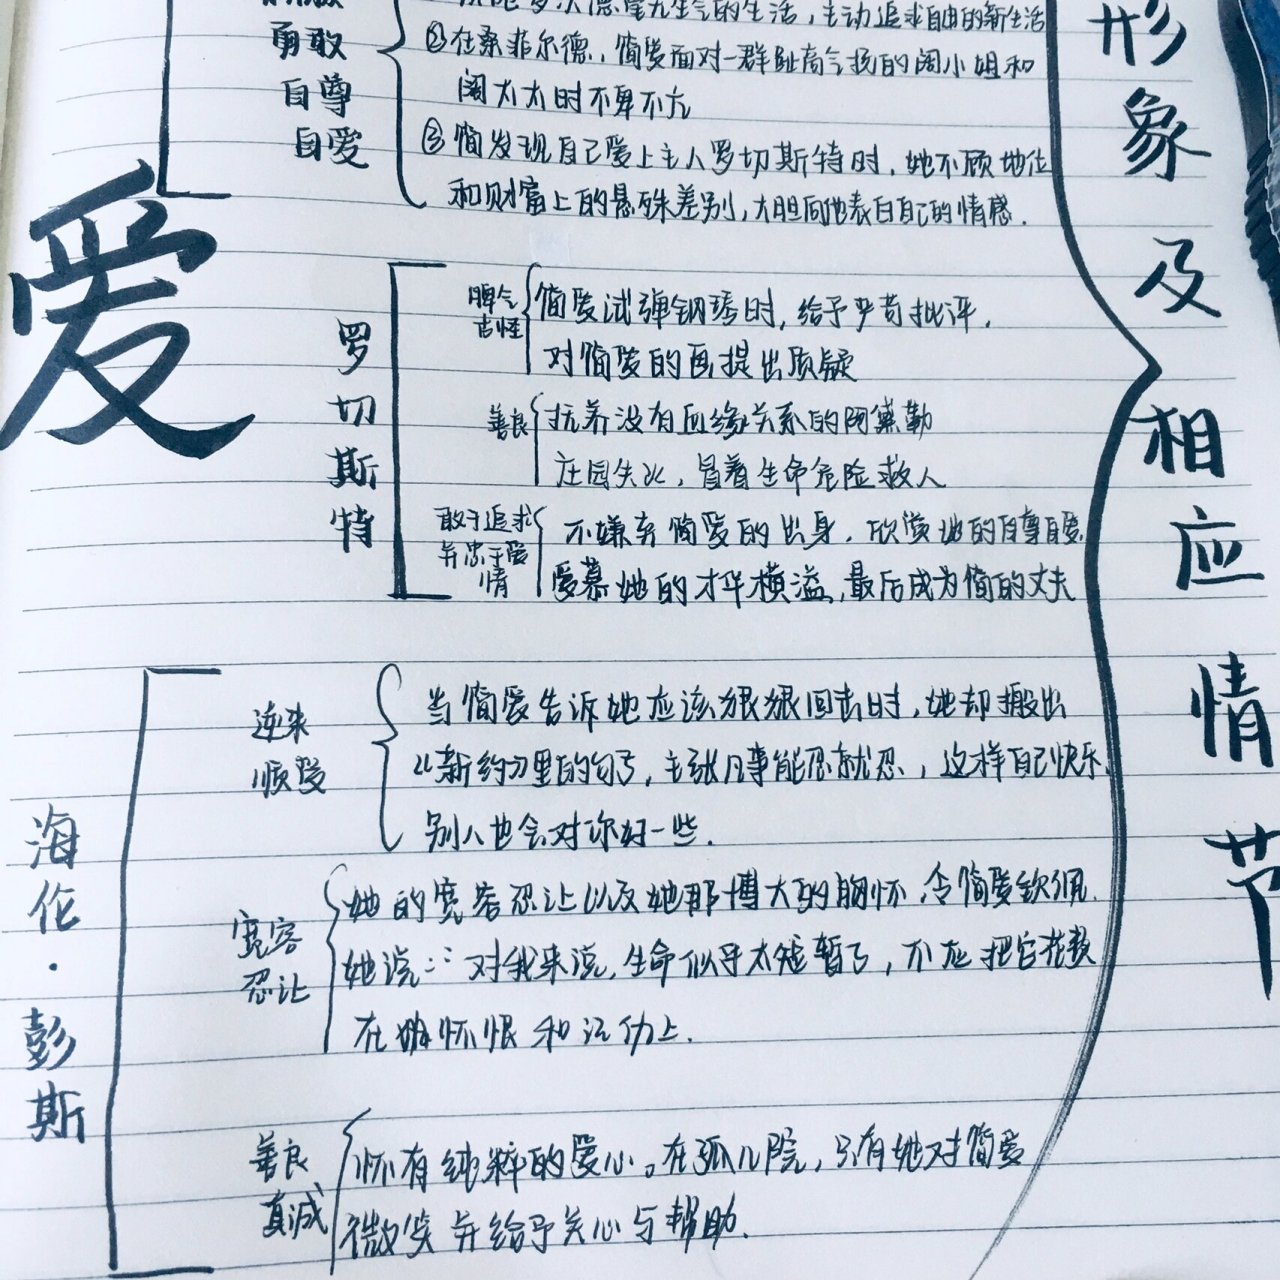 毫无生气的生活，主动追求自由的新生活
勇敢
自尊
自爱
②在桑菲尔德，简爱面对一群趾高气扬的阔小姐和
阔太太时不卑不亢
③简发现自己爱上主人罗切斯特时，她不顾地位
和财富上的悬殊差别，大胆向他表白自己的情感．
爱
罗切斯特
脾气
古怪
简爱试弹钢琴时，给予严苛批评．
对简爱的画提出质疑
善良
抚养没有血缘关系的阿黛勒
庄园失火，冒着生命危险救人
敢于追求
并忠于爱
情
不嫌弃简爱的出身．欣赏她的自尊自爱
爱慕她的才华横溢，最后成为简的丈夫
海伦·彭斯
逆来
顺受
当简爱告诉她应该狠狠回击时，她却搬出
《新约》里的句子，主张凡事能忍就忍，这样自己快乐，
别人也会对你好一些．
宽容
忍让
她的宽容忍让以及她那博大的胸怀令简爱钦佩．
她说：：对我来说，生命似乎太短暂了，不应把它花费
在怀恨和记仇上．
善良
真诚
怀有纯粹的爱心。在孤儿院，只有她对简爱
微笑并给予关心与帮助．
形象及相应情节